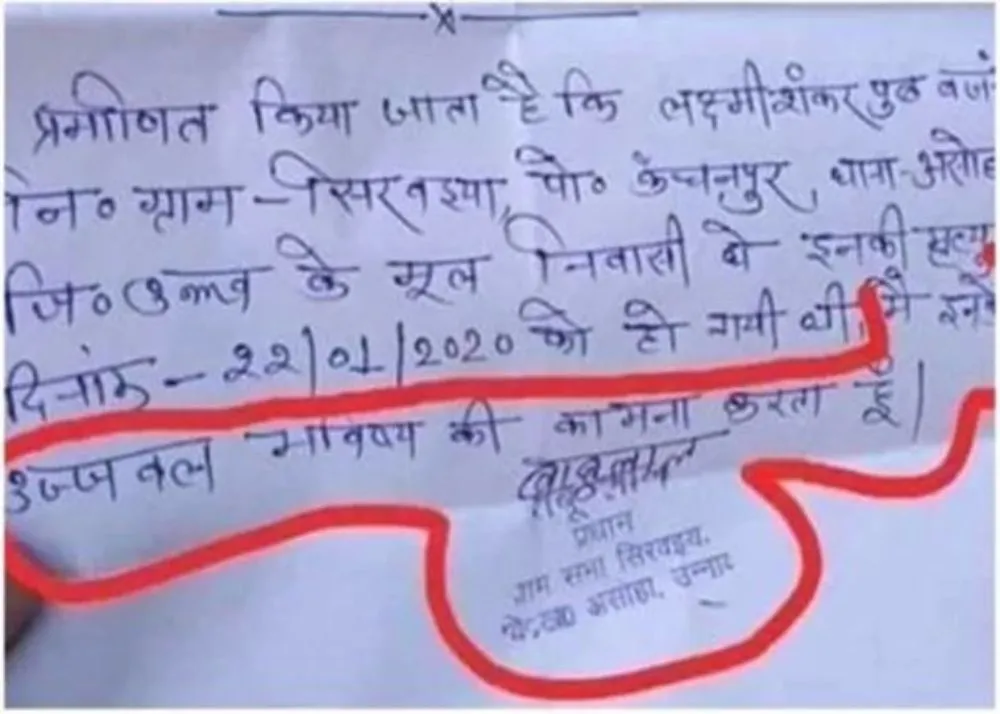 प्रमाणित किया जाता है कि लक्ष्मीशंकर पुत्र बजं
नि० ग्राम - सिरवइया, पो० कंचनपुर, थाना-असोह
जि० उन्नाव के मूल निवासी थे इनकी मृत्यु
दिनांक - 22/01/2020 को हो गयी थी, मै इनके
उज्जवल भविष्य की कामना करता हूँ।
प्रधान
ग्राम सभा सिरवइया,
असोहा, उन्नाव